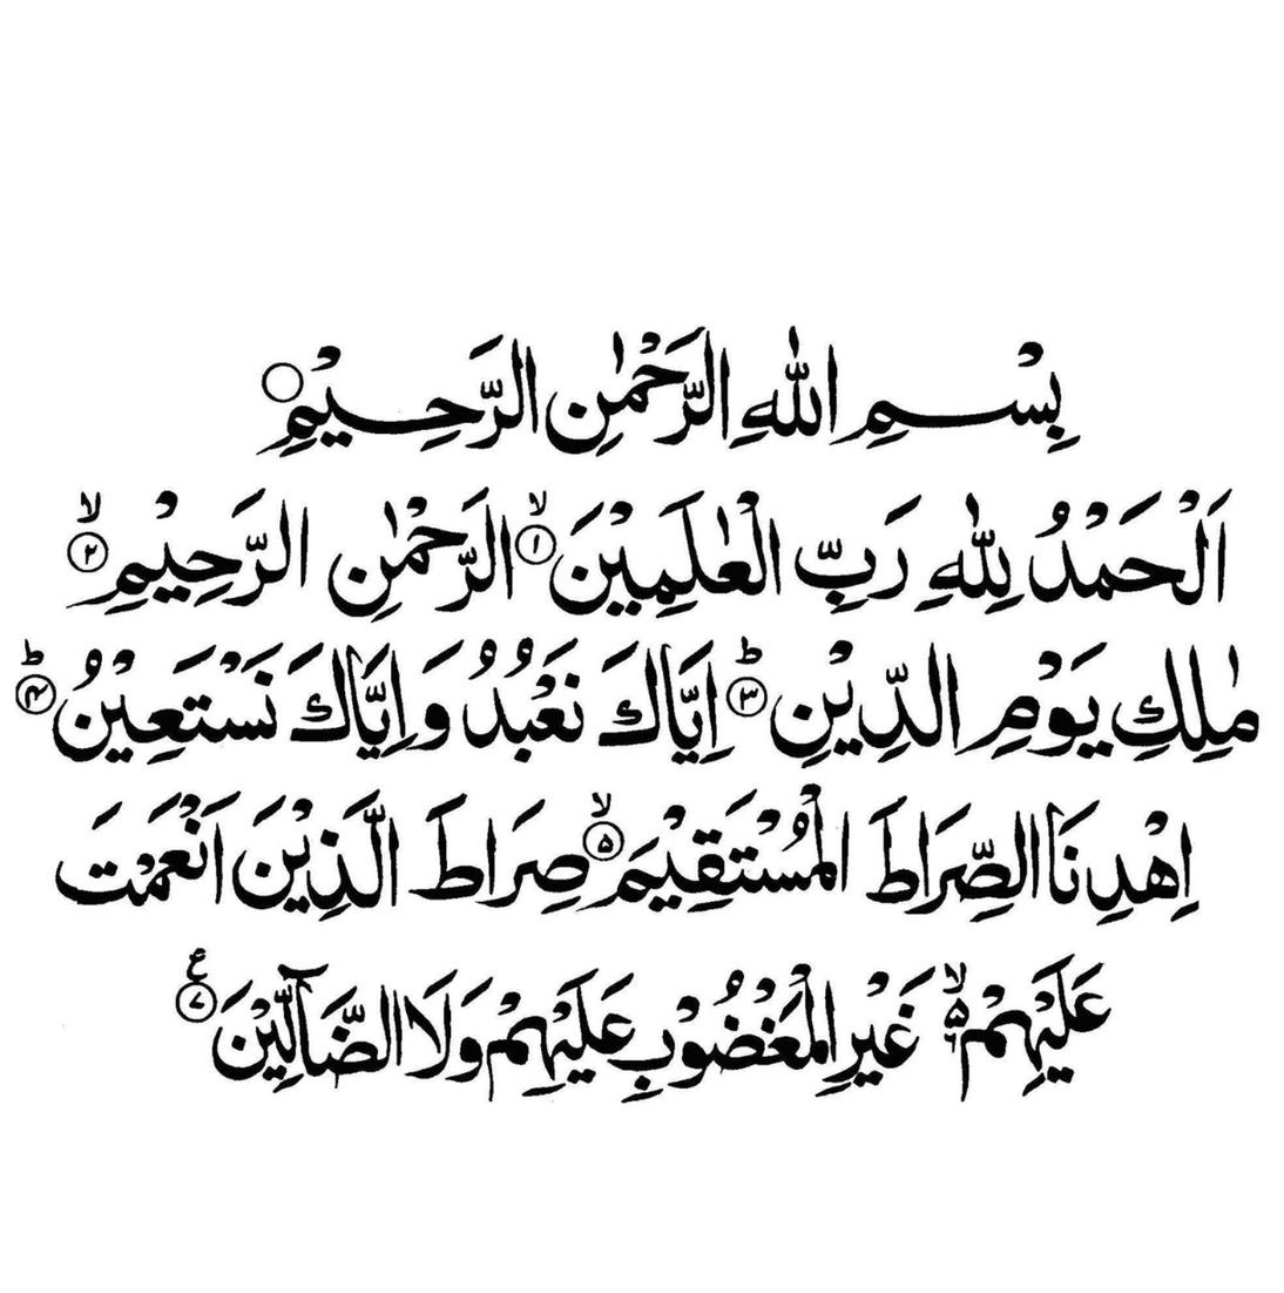 بِسْمِ اللّٰهِ الرَّحْمٰنِ الرَّحِيْمِ ○
اَلْحَمْدُ لِلّٰهِ رَبِّ الْعٰلَمِيْنَ ۙ﴿۱﴾ الرَّحْمٰنِ الرَّحِيْمِ ۙ﴿۲﴾
مٰلِكِ يَوْمِ الدِّيْنِ ؕ﴿۳﴾ اِيَّاكَ نَعْبُدُ وَاِيَّاكَ نَسْتَعِيْنُ ؕ﴿۴﴾
اِهْدِنَا الصِّرَاطَ الْمُسْتَقِيْمَ ۙ﴿۵﴾ صِرَاطَ الَّذِيْنَ اَنْعَمْتَ
عَلَيْهِمْ ۙ۵ غَيْرِ الْمَغْضُوْبِ عَلَيْهِمْ وَلَا الضَّآلِّيْنَ ع﴿۷﴾